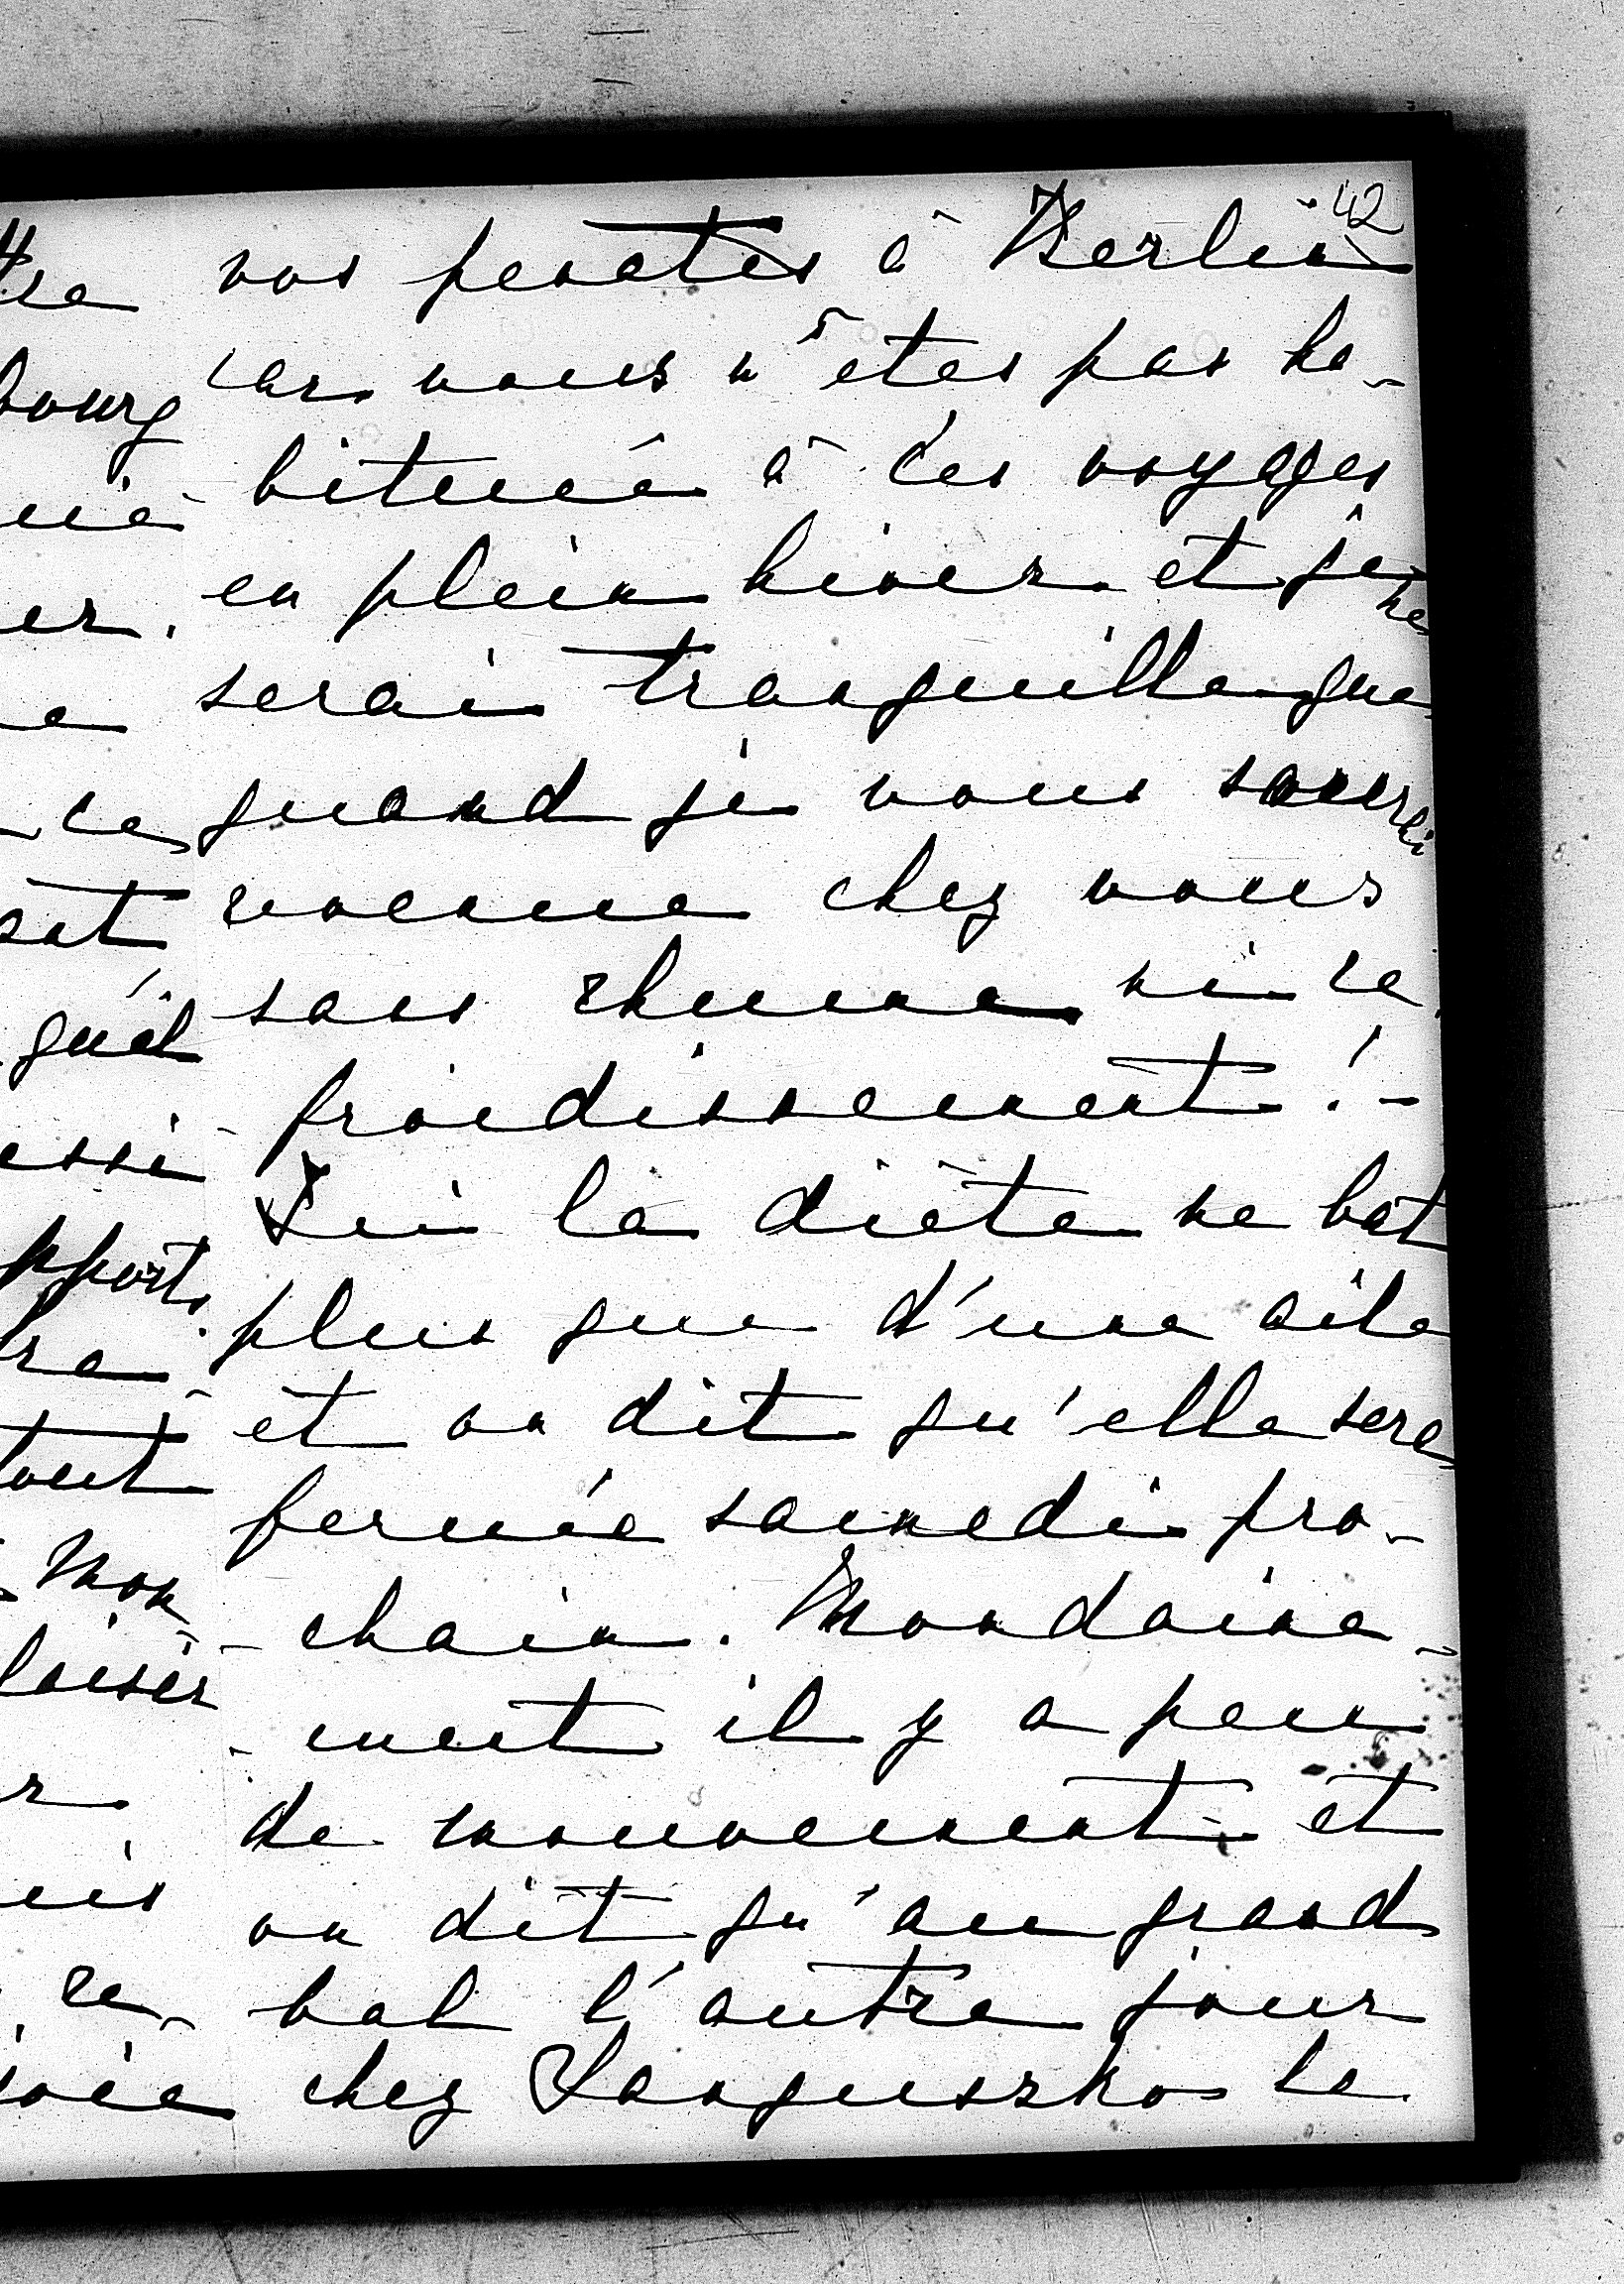 42
vos penates à Berlin
car vous n'êtes pas ha-
bituée à des voyages
en plein hiver et je ne
serai tranquille que
quand je vous saurai
revenue chez vous
sans rhume ni re
- froidissement! -
Ici la diète ne bat
plus que d'une aile
et on dit qu'elle sera
fermée samedi pro-
- chain. Mondaine-
- ment il y a peu
de mouvement et
on dit qu'au grand
bal l'autre jour
chez Sanguszko le
bourg
er.
ce
qu'el
essi
pports
tout
Mon-
laisir
re-